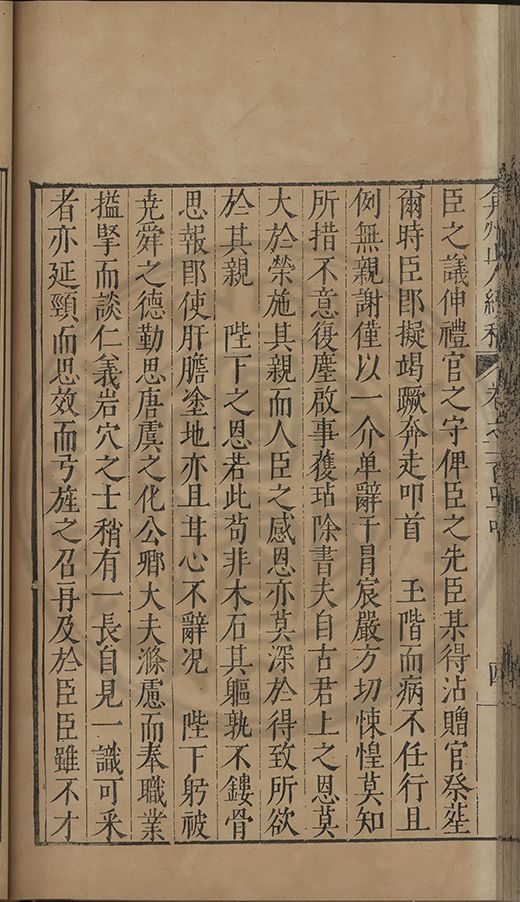 弇州山人續稿 卷之一百四十四 四
臣之議伸禮官之守俾臣之先臣某得沾贈官祭塟
爾時臣即擬竭蹶奔走叩首 玉階而病不任行且
例無親謝僅以一介单辭干冐宸嚴方切悚惶莫知
所措不意復塵啟事蒦玷除書夫自古君上之恩莫
大於榮施其親而人臣之感恩亦莫深於得致所欲
於其親 陛下之恩若此苟非木石其軀孰不鏤骨
思報即使肝膽塗地亦且甘心不辭况 陛下躬被
尭舜之德勤思唐虞之化公卿大夫滌慮而奉職業
搤掔而談仁義岩穴之士稍有一長自見一識可采
者亦延頸而思效而弓旌之召再及於臣臣雖不才